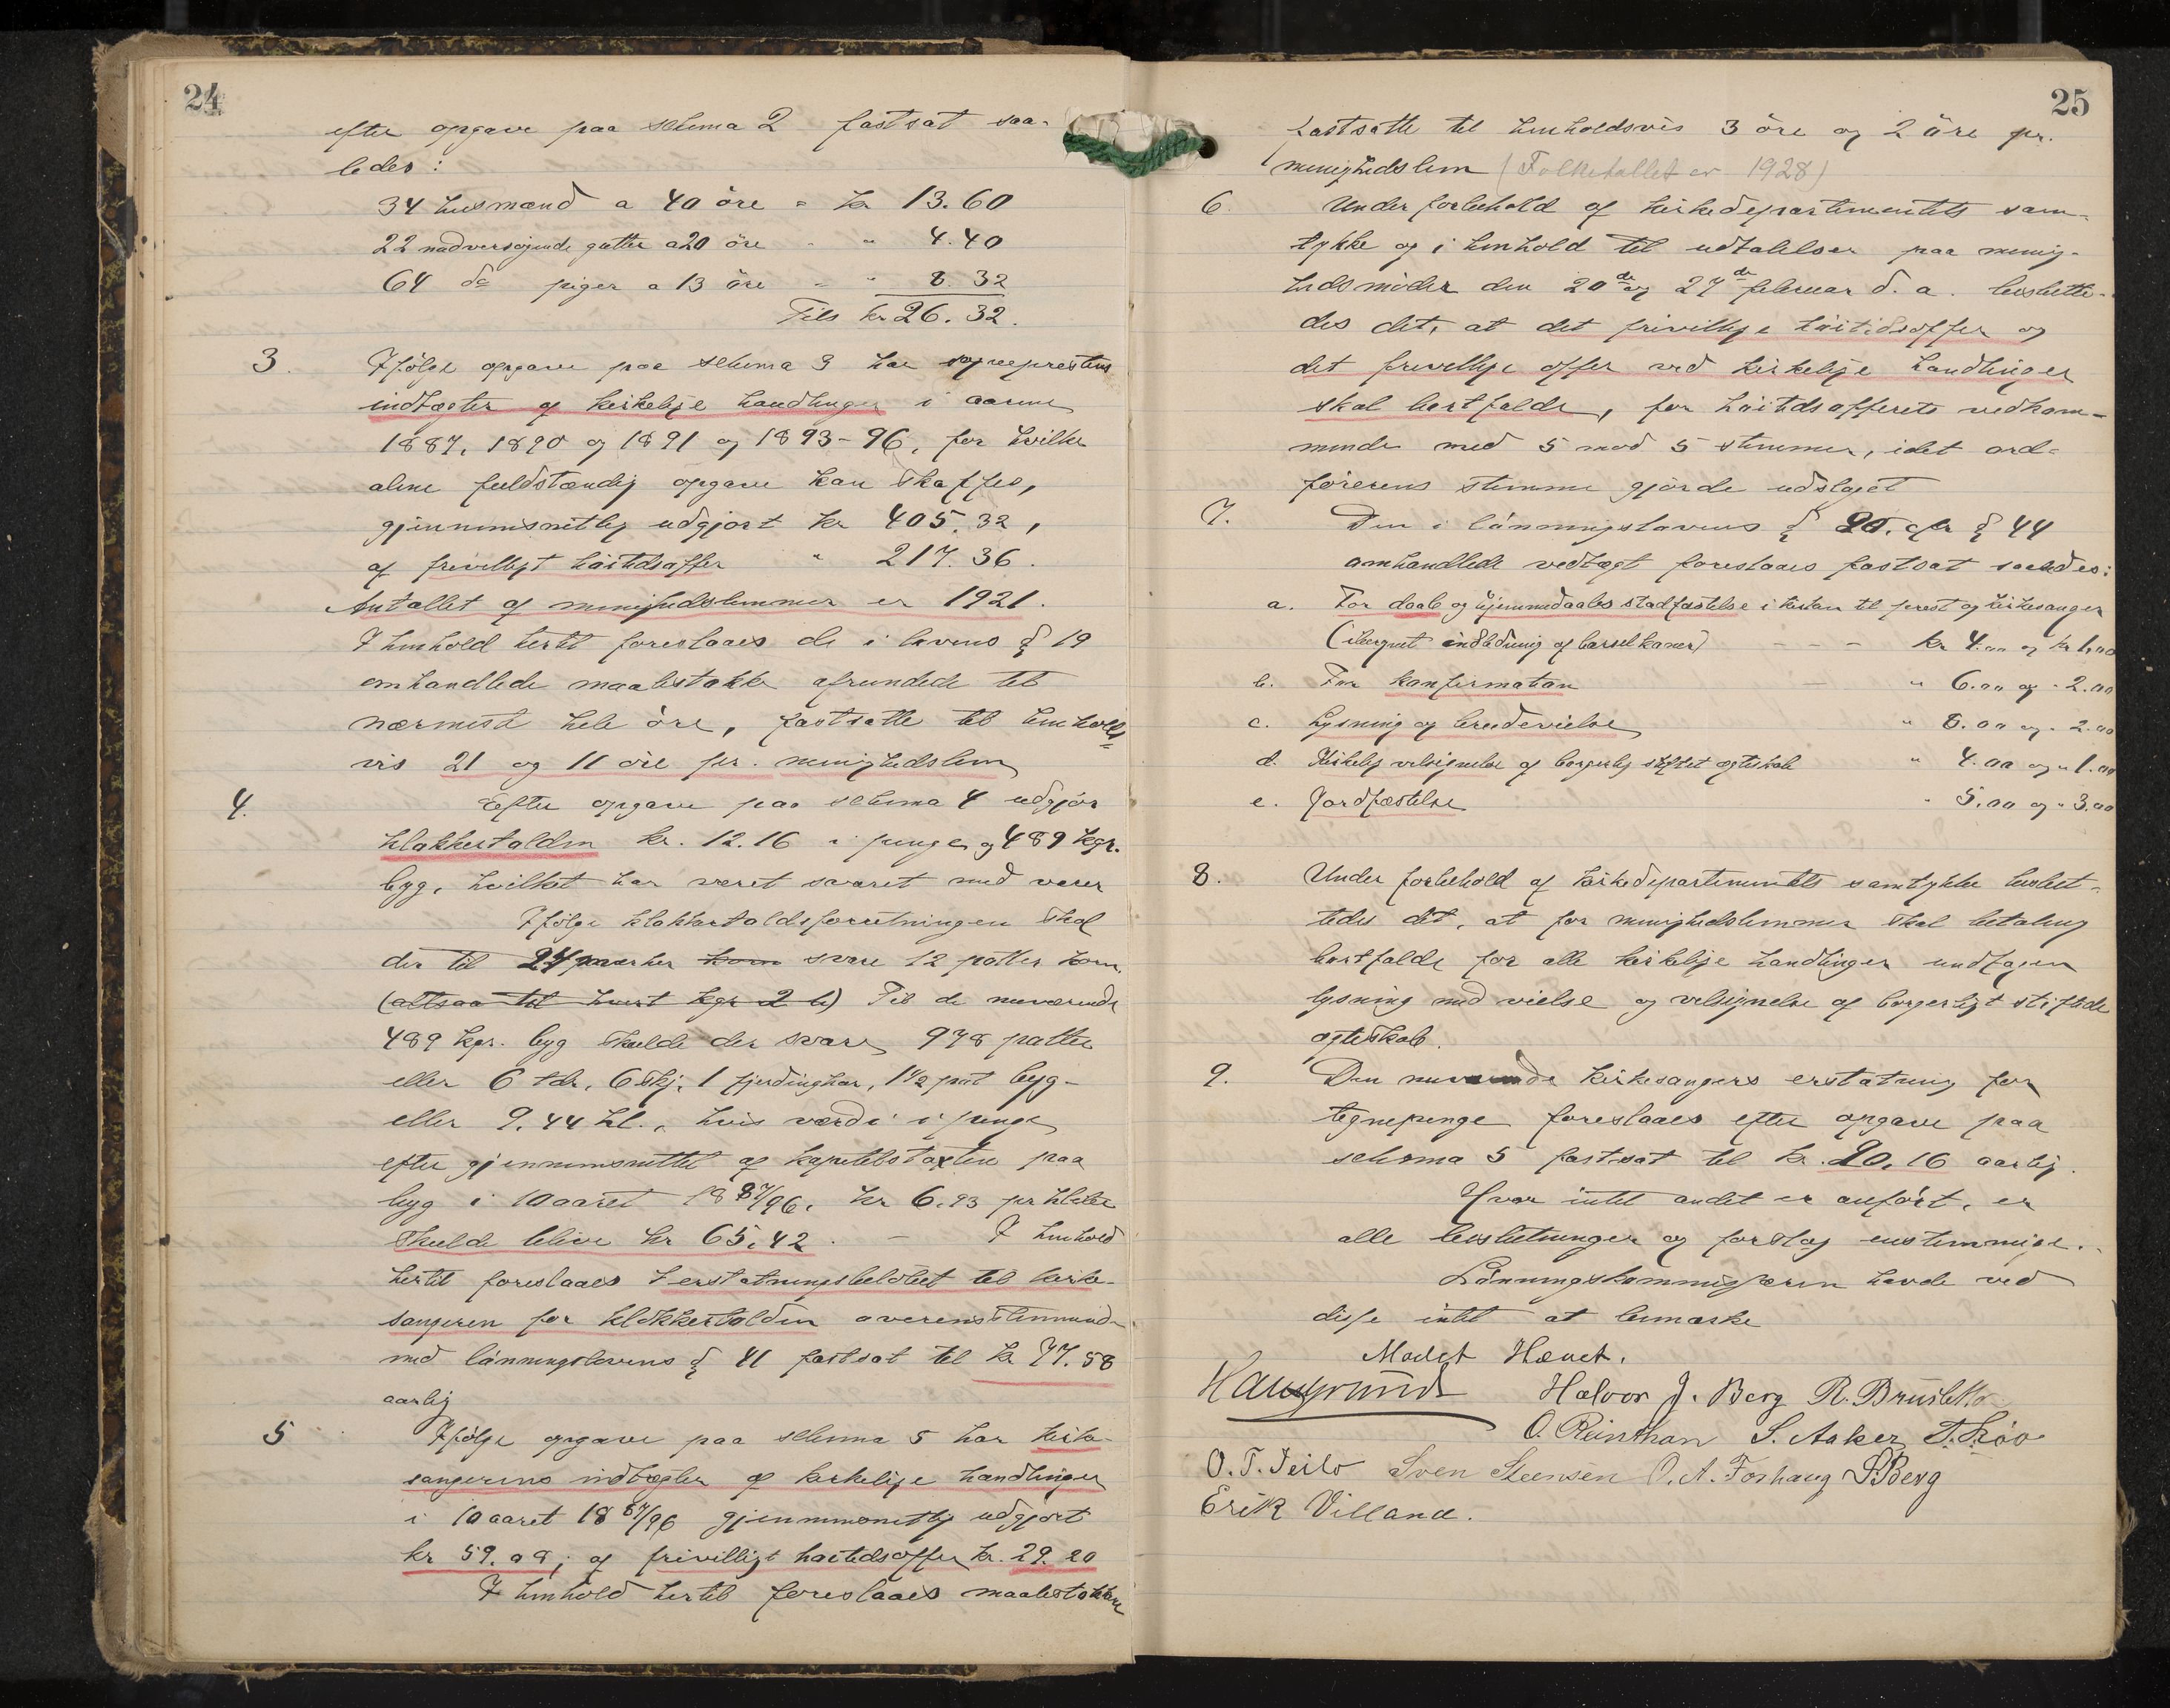 24
efter opgave paa schema 2 fastsat saa-
ledes:
34 husmænd a 40 öre = kr 13.60
22 nadversøgende gutter a 20 öre - " 4.40
64 do piger a 13 öre - " 8.32
Tils kr 26.32.
3. Ifölge opgave paa schema 3 har sogneprestens
indtægter af kirkelige handlinger i aarene
1887, 1890 og 1891 og 1893-96, for hvilke
alene fuldstændig opgave kan skaffes,
gjennemsnitlig udgjort kr 405.32,
af frivilligt höitidsoffer " 217.36.
Antallet af menighedslemmer er 1921.
I henhold hertil foreslaaes de i lovens § 19
omhandlede maalestokke afrundede til
nærmeste hele öre, fastsatte til henholds-
vis 21 og 11 öre pr. menighedslem
4. Efter opgave paa schema 4 udgjör
klokkertolden kr. 12.16 i penge og 489 kgr.
byg, hvilket har været svaret med varer
Ifölge klokkertoldsforretningen skal
der til 24 marker korn svare 12 potter korn.
(altsaa til hvert kgr 2 l) Til de nuværende
489 kgr. byg skulde der svare 978 potter
eller 6 tdr. 6 skj. 1 fjerdingkar, 1 1/2 pot byg -
eller 9.44 hl., hvis værdi i penge
efter gjennemsnittet af kapitelstaxten paa
byg i 10 aaret 18 87/96, kr 6.93 pr hl
skulde blive kr 65.42. - I henhold
hertil foreslaaes erstatningsbelöbet til kirke-
sangeren for klokkertolden overensstemmende
med lönningslovens § 41 fastsat til kr 77.58
aarlig
5 Ifölge opgave paa schema 5 har kirke-
sangerens indtægter af kirkelige handlinger
i 10 aaret 18 87/96 gjennemsnitlig udgjort
kr 59.09; af frivilligt höitidsoffer kr. 29.20
I henhold hertil foreslaaes maalestokkene
25
fastsatte til henholdsvis 3 öre og 2 öre pr.
menighedslem (Folketallet er 1928)
6. Under forbehold af kirkedepartementets sam-
tykke og i henhold til udtalelser paa menig-
hedsmöder den 20de og 27de februar d. a. beslutte-
des det, at det frivillige höitidsoffer og
det frivillige offer ved kirkelige handlinger
skal bortfalde, for höitidsofferets vedkom-
mende med 5 mod 5 stemmer, idet ord-
förerens stemme gjorde udslaget
7. Den i lönningslovens § 20, cfr § 44
omhandlede vedtægt foreslaaes fastsat saaledes:
a. For daab og hjemmedaabs stadfæstelse i kirken til prest og kirkesanger
(iberegnet indledning af barselkoner) - - - kr 4.00 og kr 1.00
b. For konfirmation - " 6.00 og " 2.00
c. Lysning og brudevielse " 8.00 og " 2.00
d. Kirkelig velsignelse af borgerlig stiftet ægteskab " 4.00 og " 1.00
e. Jordfæstelse " 5.00 og " 3.00
8. Under forbehold af kirkedepartementets samtykke beslut-
tedes det, at for menighedslemmer skal betaling
bortfalde for alle kirkelige handlinger undtagen
lysning med vielse og velsignelse af borgerligt stiftede
ægteskab.
9. Den nuværende kirkesangers erstatning for
tegnepenge foreslaaes efter opgave paa
schema 5 fastsat til kr. 20.16 aarlig.
Hvor intet andet er anfört, er
alle beslutninger og forslag enstemmige.
Lönningskommissæren havde ved
disse intet at bemærke
Mødet Hævet.
Haugrund Halvor J. Berg R. Brusletto
O. Reinthon S. Aaker
Sven Steensen O. A. Forhaug Berg
Erik Villand.